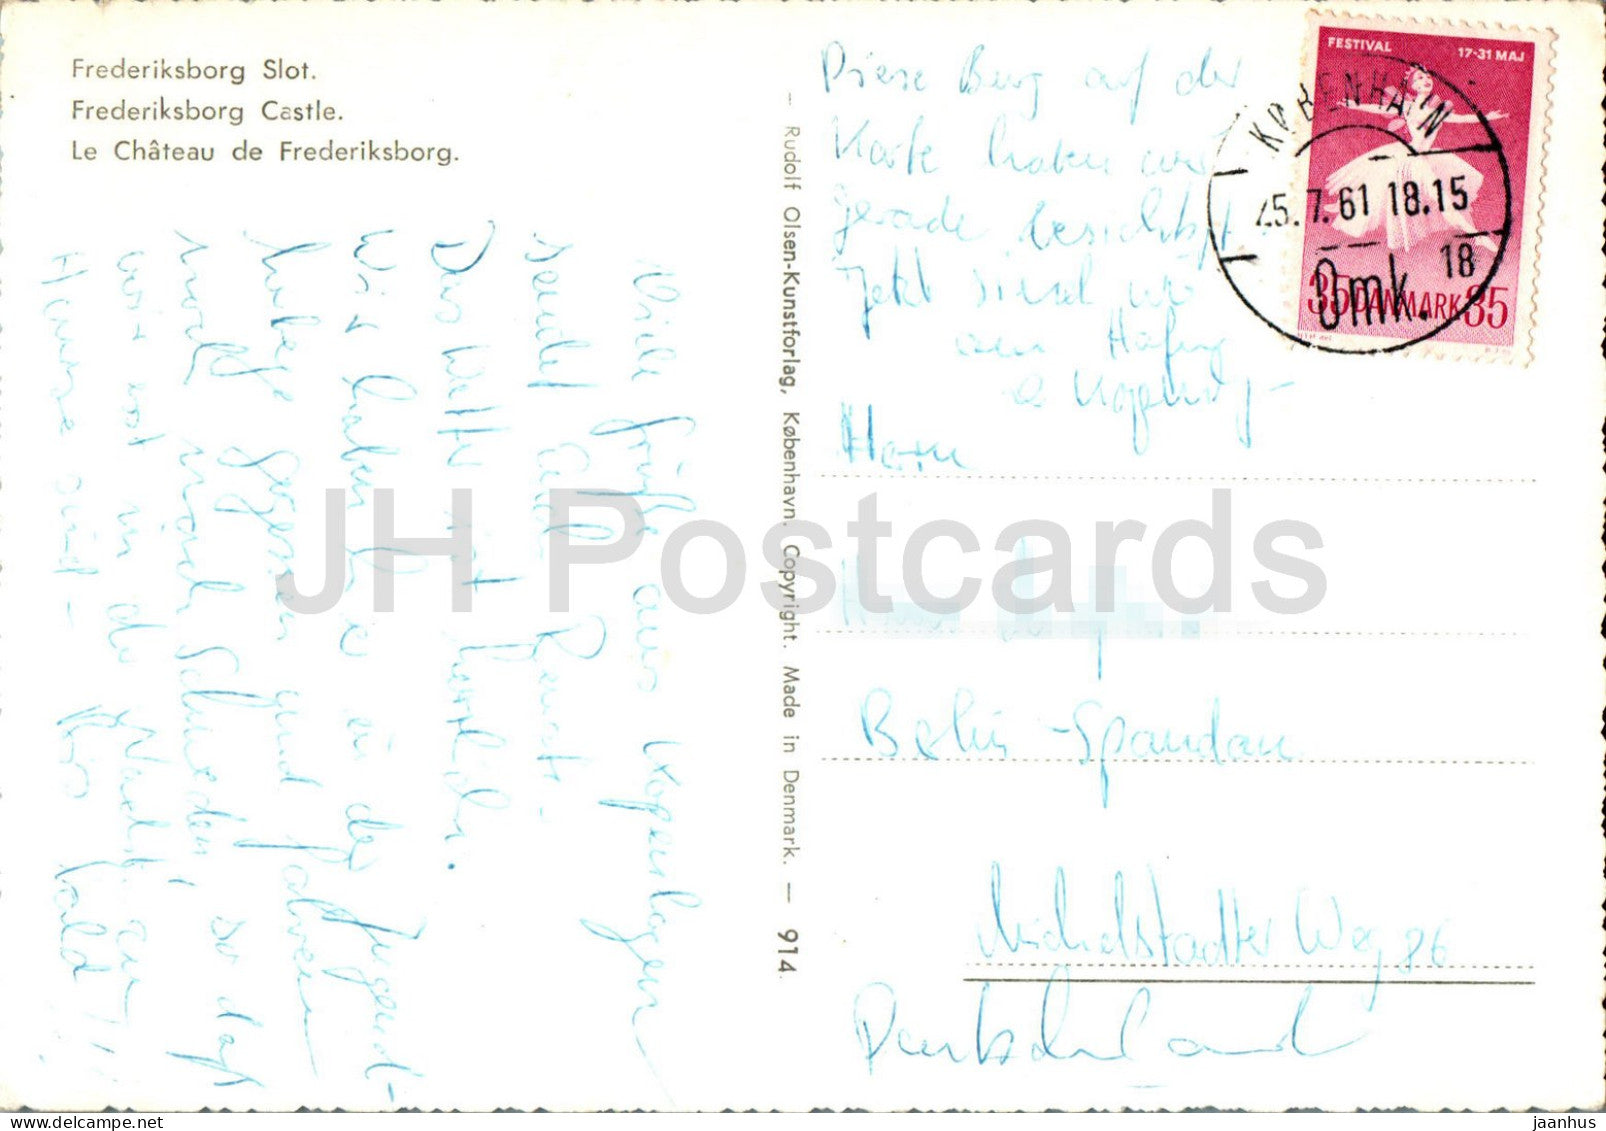 Frederiksborg Slot.
Frederiksborg Castle.
Le Château de Frederiksborg.
Viele Grüße aus Kopenhagen
sendet Euch
Das Wetter ist herrlich.
Wir haben hier in der Jugend-
herberge gegessen und fahren
noch nach Schweden, so daß
wir erst in der Nacht zu
Hause sind –
— Rudolf Olsen-Kunstforlag, København. Copyright. Made in Denmark. — 914.
Diese Burg auf der
Karte haben wir
gerade besichtigt
Jetzt sind wir
am Hafen
Kopenhag-
Herrn
Berlin-Spandau
Michelstadter Weg 86
Deutschland
FESTIVAL 17-31 MAJ
35 DANMARK 35
KØBENHAVN
25.7.61 18.15
Omk. 18
JH Postcards
jaanhus
delcampe.net